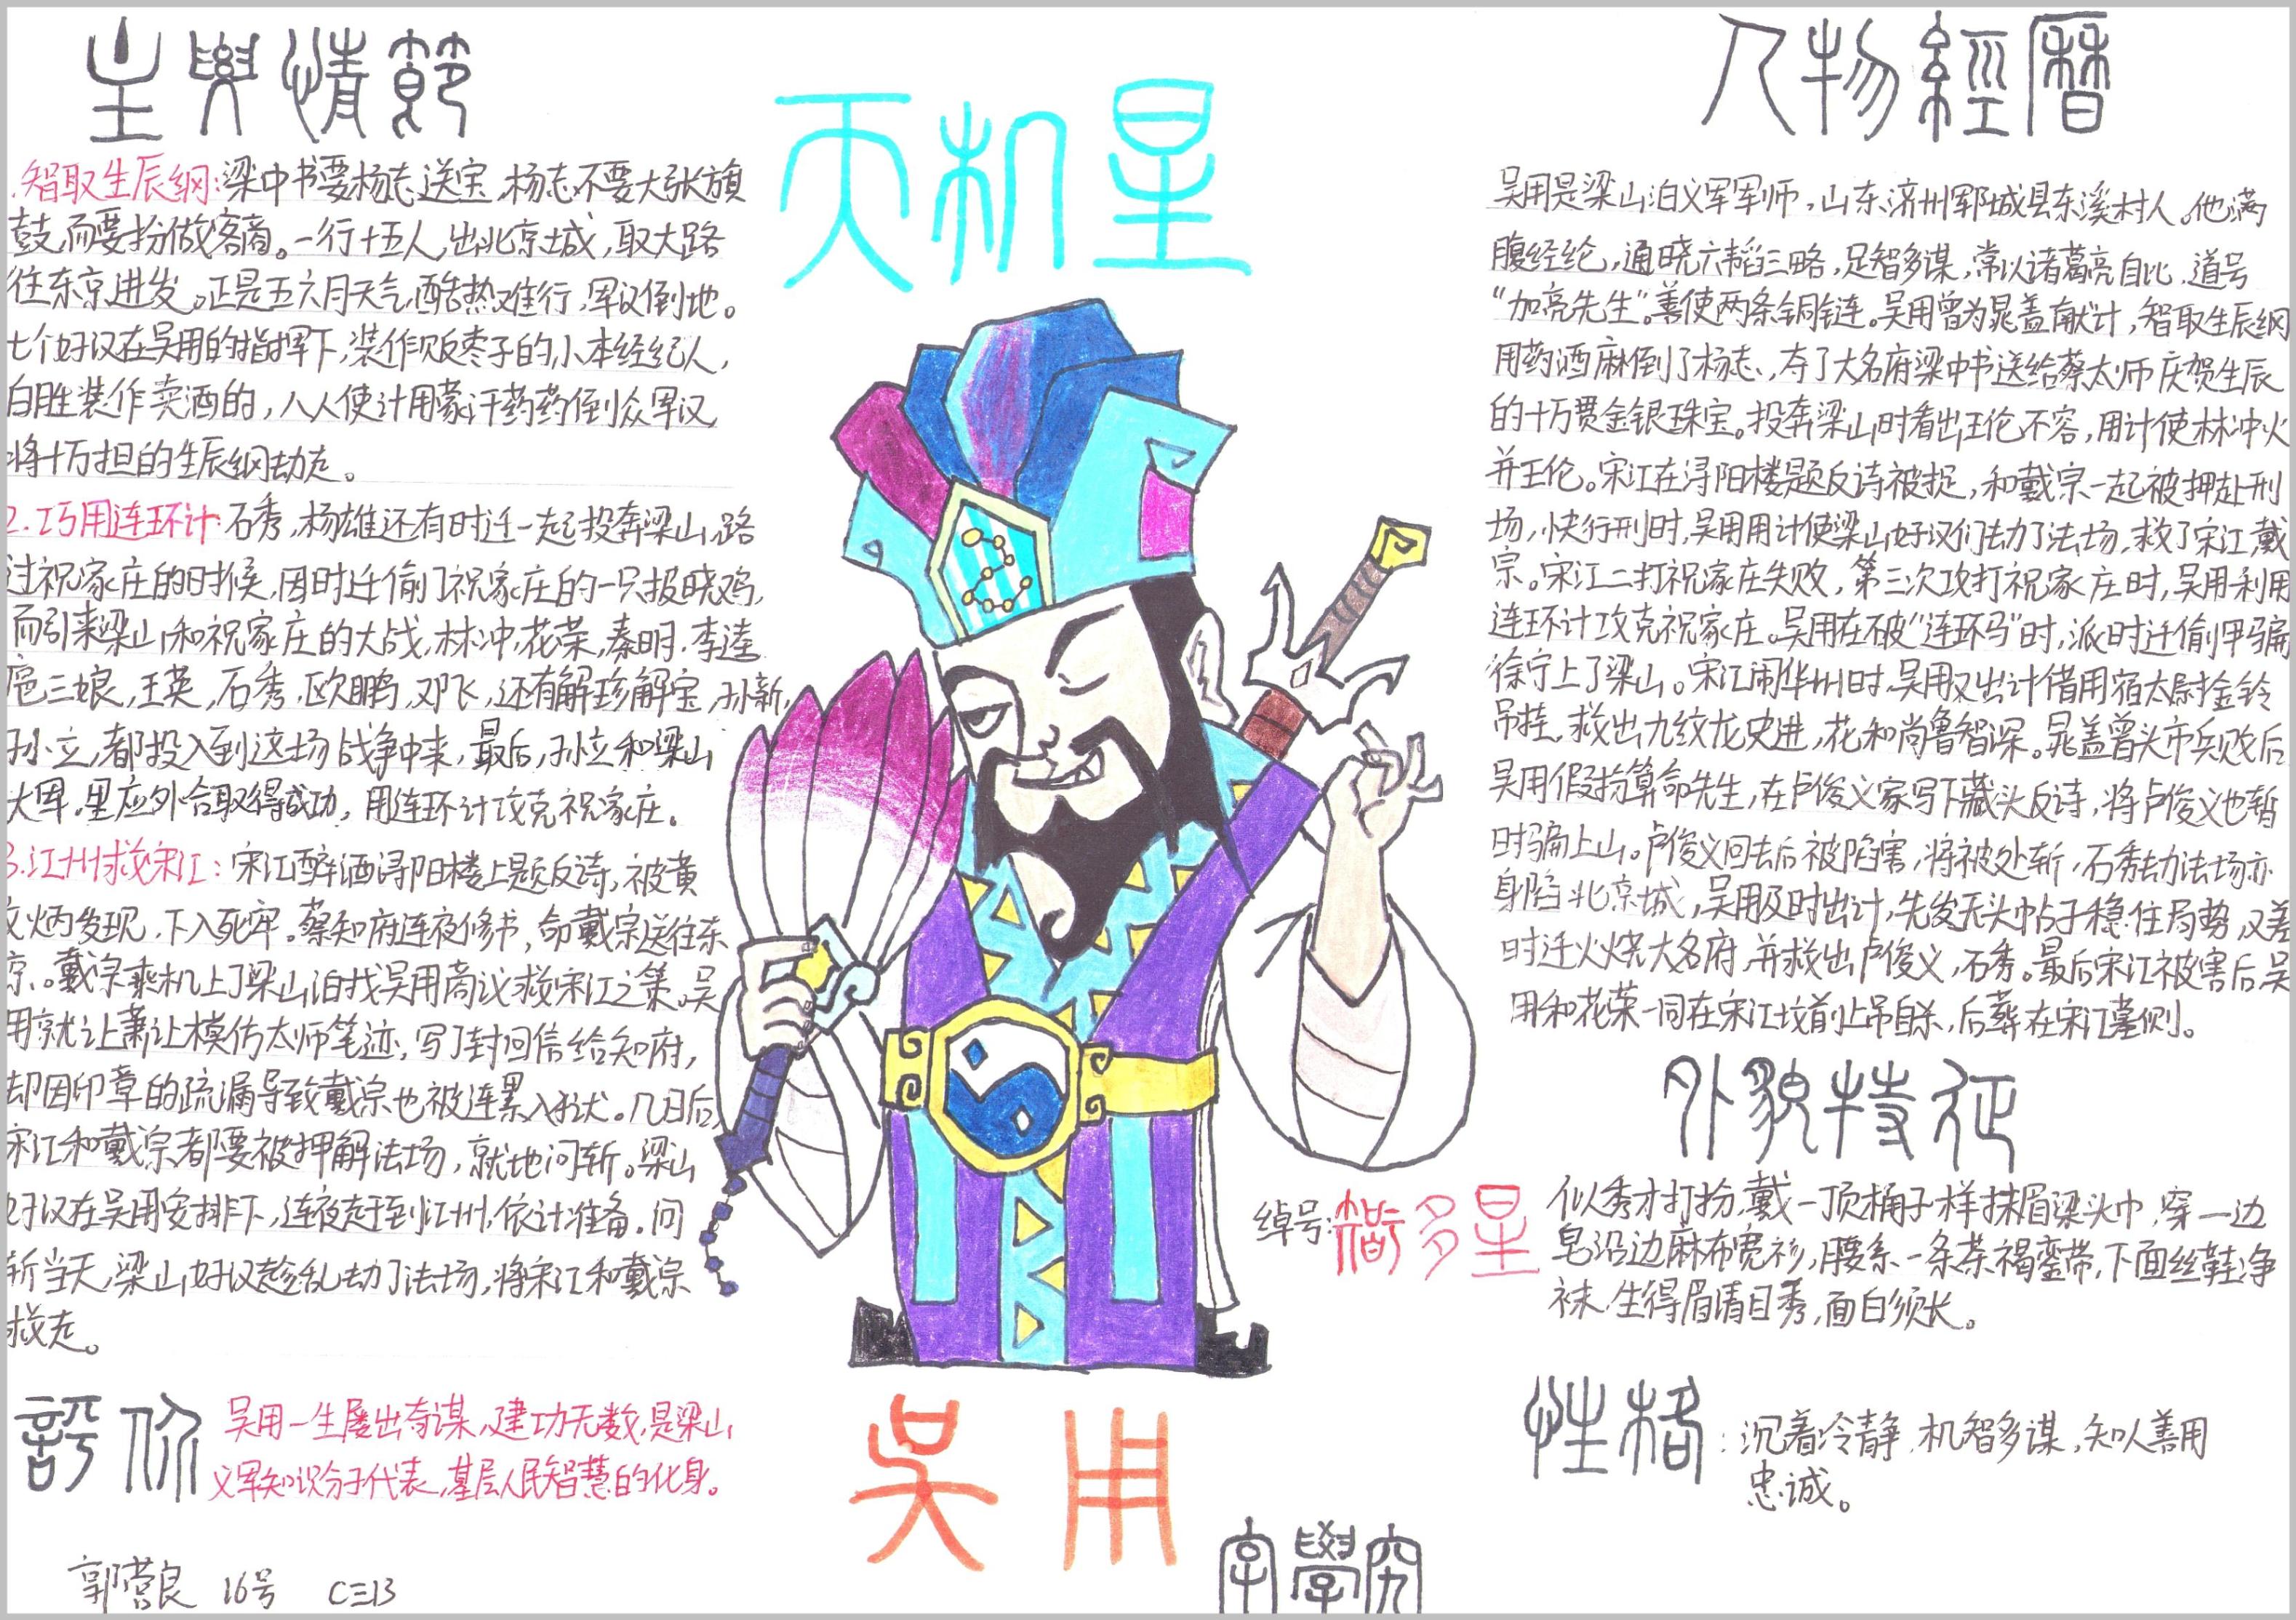 主要情節
.智取生辰纲:梁中书要杨志送宝,杨志不要大张旗
鼓,而要扮做客商。一行十五人,出北京城,取大路
往东京进发。正是五六月天气,酷热难行,军汉倒地。
七个好汉在吴用的指挥下,装作贩枣子的小本经纪人,
白胜装作卖酒的,八人使计用蒙汗药药倒众军汉,
将十万担的生辰纲劫走。
2.巧用连环计:石秀,杨雄还有时迁一起投奔梁山,路
过祝家庄的时候,因时迁偷了祝家庄的一只报晓鸡,
而引来梁山和祝家庄的大战,林冲,花荣,秦明.李逵
扈三娘,王英,石秀,欧鹏,邓飞,还有解珍解宝,孙新,
孙立,都投入到这场战争中来,最后,孙立和梁山
大军,里应外合取得成功,用连环计攻克祝家庄。
3.江州救宋江:宋江醉酒浔阳楼上题反诗,被黄
文炳发现,下入死牢。蔡知府连夜修书,命戴宗送往东
京。戴宗乘机上了梁山泊找吴用商议救宋江之策。吴
用就让萧让模仿太师笔迹,写了封回信给知府,
却因印章的疏漏导致戴宗也被连累入狱。几日后,
宋江和戴宗都要被押解法场,就地问斩。梁山
好汉在吴用安排下,连夜赶到江州,依计准备。问
斩当天,梁山好汉趁乱劫了法场,将宋江和戴宗
救走。
評价
吴用一生屡出奇谋,建功无数,是梁山
义军知识分子代表,基层人民智慧的化身。
郭营良 16号 C三13
天机星
绰号:
多星
吴用
學究
人物經曆
吴用是梁山泊义军军师,山东济州郓城县东溪村人。他满
腹经纶,通晓六韬三略,足智多谋,常以诸葛亮自比,道号
“加亮先生”。善使两条铜链。吴用曾为晁盖献计,智取生辰纲
用药酒麻倒了杨志,夺了大名府梁中书送给蔡太师庆贺生辰
的十万贯金银珠宝。投奔梁山时看出王伦不容,用计使林冲火
并王伦。宋江在浔阳楼题反诗被捉,和戴宗一起被押赴刑
场,快行刑时,吴用用计使梁山好汉们劫了法场,救了宋江,戴
宗。宋江二打祝家庄失败,第三次攻打祝家庄时,吴用利用
连环计攻克祝家庄。吴用在破“连环马”时,派时迁偷甲骗
徐宁上了梁山。宋江闹华州时,吴用又出计借用宿太尉金铃
吊挂,救出九纹龙史进,花和尚鲁智深。晁盖曾头市兵败后
吴用假扮算命先生,在卢俊义家写下藏头反诗,将卢俊义也暂
时骗上山。卢俊义回去后被陷害,将被处斩,石秀劫法场亦
身陷北京城,吴用及时出计,先发无头帖子稳住局势,又差
时迁火烧大名府,并救出卢俊义,石秀。最后宋江被害后,吴
用和花荣一同在宋江坟前上吊自杀,后葬在宋江墓侧。
外貌特征
似秀才打扮,戴一顶桶子样抹眉梁头巾,穿一边
皂沿边麻布宽衫,腰系一条茶褐銮带,下面丝鞋净
袜,生得眉清目秀,面白须长。
性格:沉着冷静,机智多谋,知人善用
忠诚。